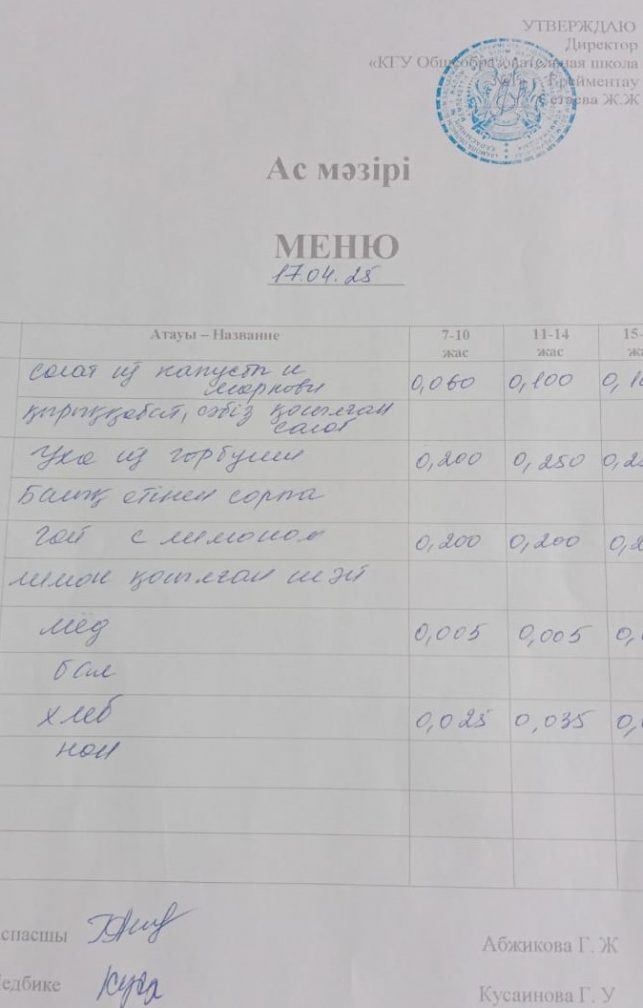 УТВЕРЖДАЮ
Директор
«КГУ Общеобразовательная школа
Ерейментау
Ж.Ж
Ас мәзірі
МЕНЮ
17.04.25
Атауы – Название 7-10 жас 11-14 жас 15-
салат из капусты и моркови 0,060 0,100 0,1
қырыққабат, сәбіз қосылған салат
Уха из горбуши 0,200 0,250 0,25
Балық етінен сорпа
чай с лимоном 0,200 0,200 0,2
лимон қосылған шәй
мёд 0,005 0,005 0,
бал
хлеб 0,025 0,035 0,
нан
спасшы Абжикова Г. Ж
едбике Кусаинова Г. У